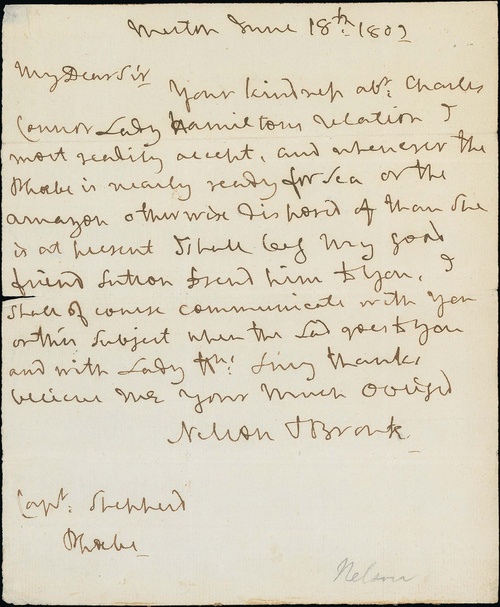 Merton June 18th: 1802
My Dear Sir
Your kindness abt: Charles
Connor Lady Hamiltons relation I
most readily accept, and whenever the
Phoebe is nearly ready for Sea or the
amazon otherwise disposed of than She
is at present I shall beg My good
friend Sutton to send him to You, I
shall of course communicate with You
on this subject when the Lad goes to You
and with Lady Hns: thanks
believe me Your Much Obliged
Nelson & Bronte
Capt: Shepherd
Phoebe
Nelson